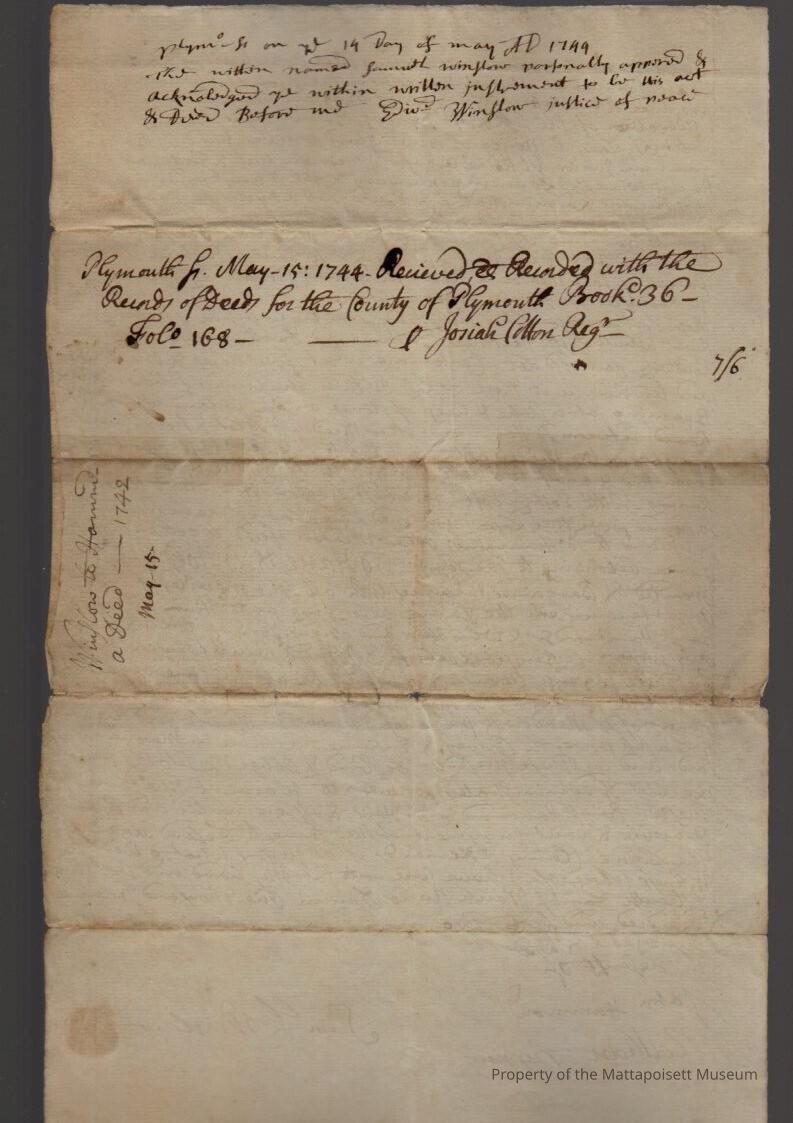 plymo ss on ye 14 Day of may AD 1744
the within named Samuell winslow personally appered &
acknoledged ye within written instrement to be his act
& Deed Before me Edwd Winslow justice of peace
Plymouth ss. May-15: 1744. Recieved & Recorded with the
Records of Deeds for the County of Plymouth Book 36-
Folo 168- Josiah Cotton Regr
7/6
Winslow to
a Deed — 1742
May 15-
Property of the Mattapoisett Museum